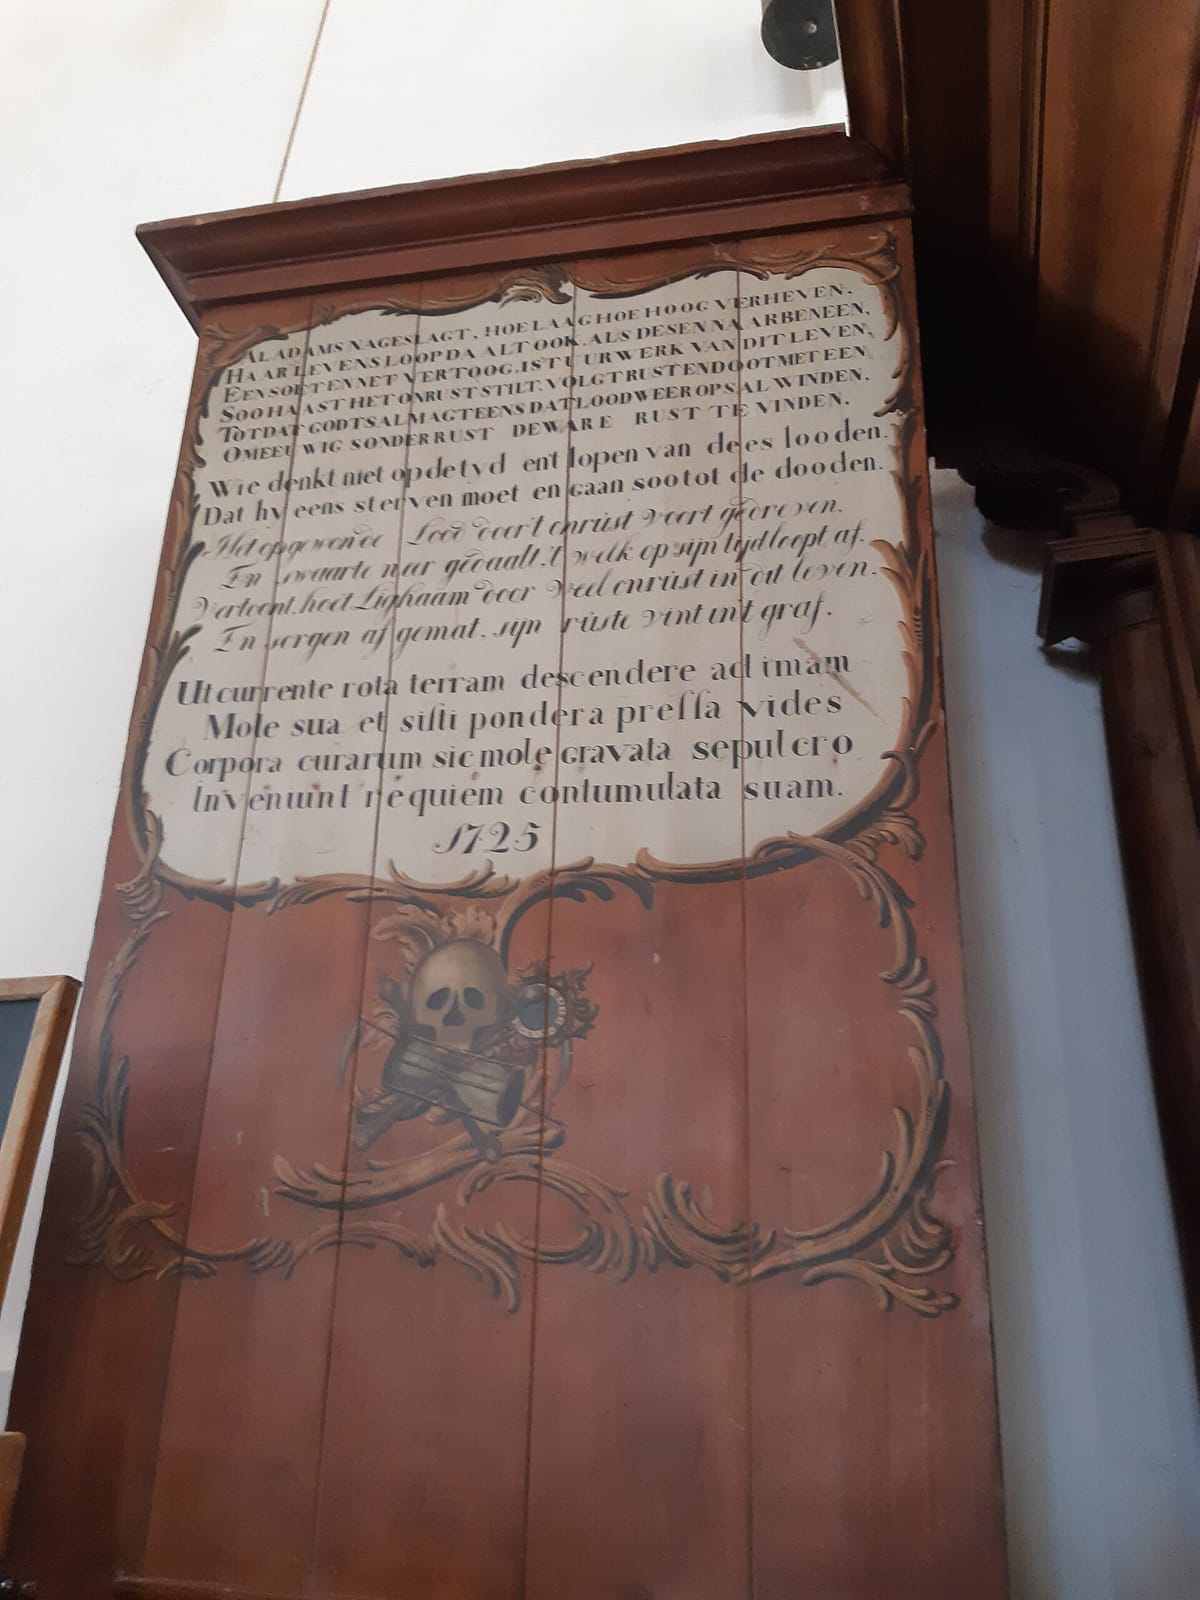 AL ADAMS NAGESLAGT, HOE LAAG HOE HOOG VERHEVEN.
HAAR LEVENS LOOP DAALT OOK, ALS DESEN NAAR BENEEN,
EEN SOET EN NET VERTOOG, IST UURWERK VAN DIT LEVEN,
SOO HAAST HET ONRUST STILT, VOLGT RUST EN DOOT MET EEN
TOTDAT GODTS ALMAGT EENS DAT LOOD WEER OP SAL WINDEN.
OM EEUWIG SONDER RUST DE WARE RUST TE VINDEN.
Wie denkt niet op de tyd en't lopen van dees looden.
Dat hy eens sterven moet en gaan soo tot de dooden.
Het opgewonde Lood door't onrúst voort gedreven.
En swaarte neer gedaalt, 't welk op sijn tijd loopt af.
Vertoont, hoet Lighaam door veel onrúst in dit leven.
En sorgen af gemat, sijn rúste vint int graf.
Ut currente rota terram descendere ad imam
Mole sua et sisti pondera pressa vides
Corpora curarum sic mole gravata sepulcro
Inveniunt requiem contumulata suam.
1725